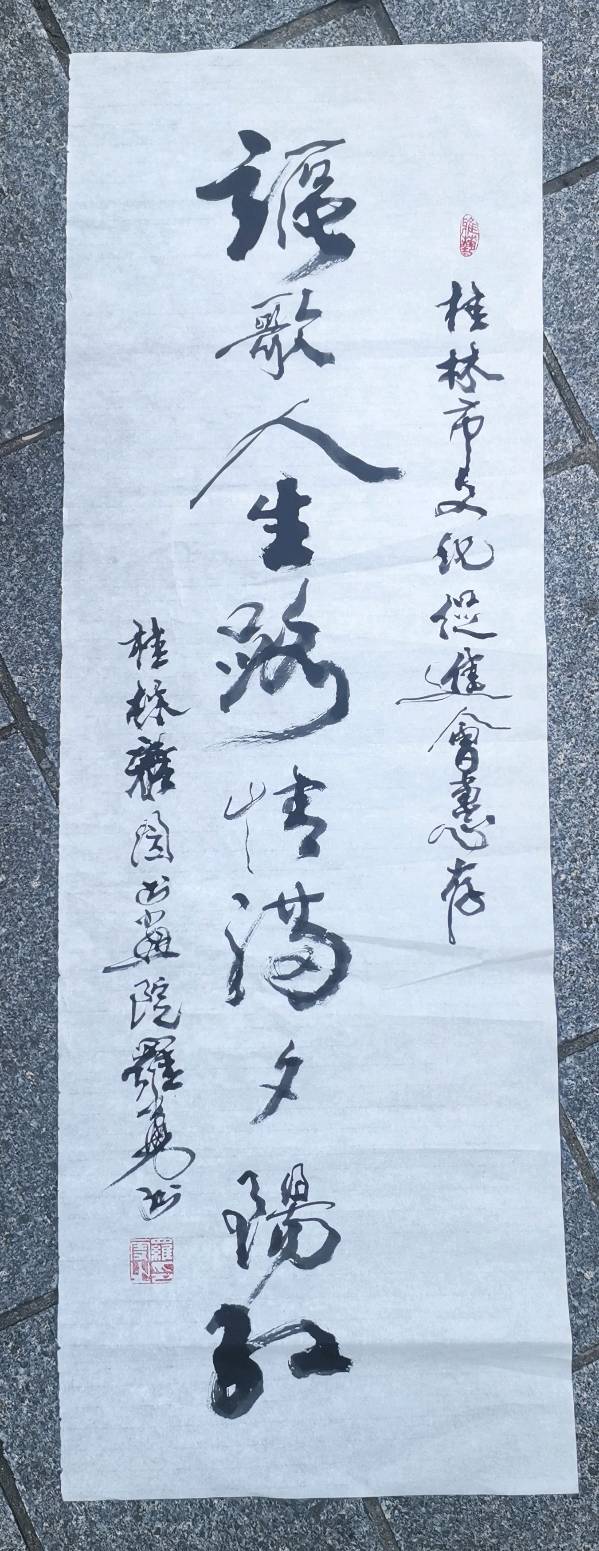 雅藝
桂林市文化促進會惠存
謳歌人生路情滿夕陽紅
桂林園书畫院羅书